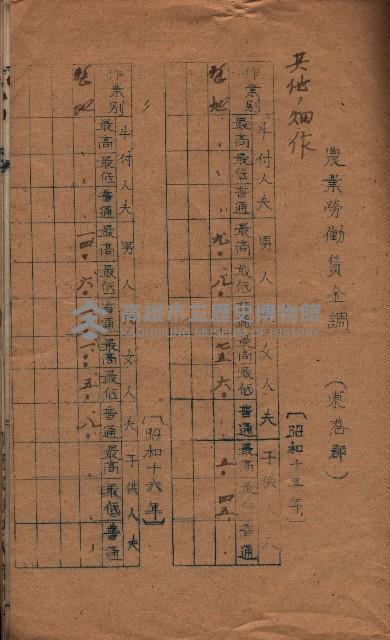 農業勞働賃金調 (東港郡)
其他ノ畑作
〔昭和十五年〕
作業別 斗付人夫 男人夫 女人夫 子供人夫
最高 最低 普通 最高 最低 普通 最高 最低 普通 最高 最低 普通
整地
〔昭和十六年〕
作業別 斗付人夫 男人夫 女人夫 子供人夫
最高 最低 普通 最高 最低 普通 最高 最低 普通 最高 最低 普通
整地
高雄市立歷史博物館
KAOHSIUNG MUSEUM OF HISTORY